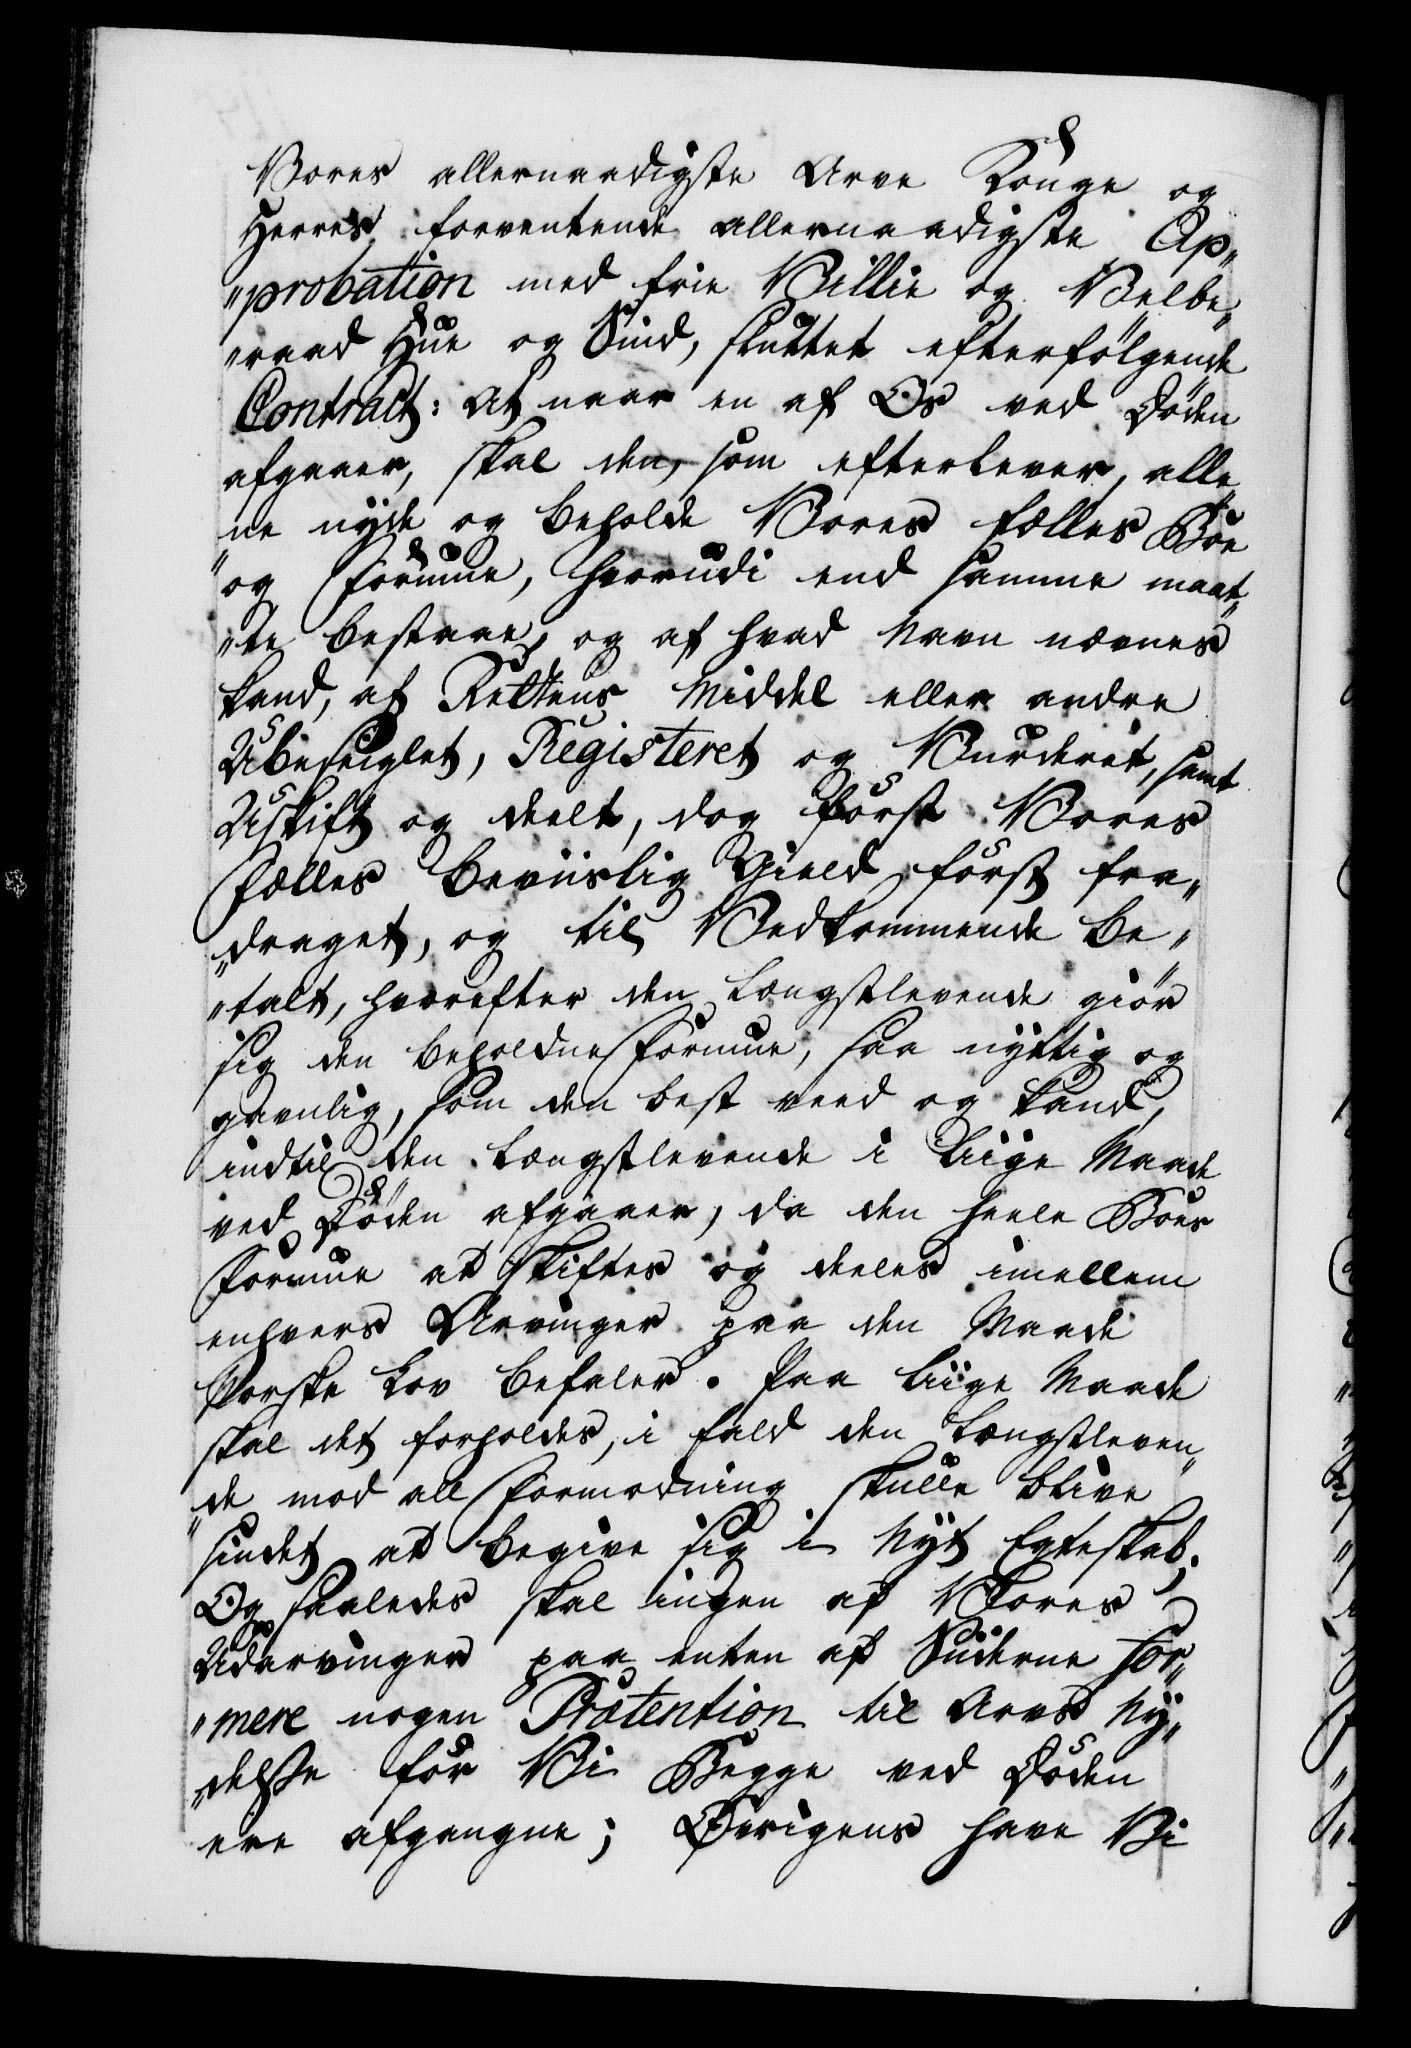 Vores allernaadigste Arve Konge og
Herres forventende allernaadigste Ap„
„probation med frie Villie og Velbe„
„raad Hue og Sind, sluttet efterfølgende
Contract: At naar en af Os ved Døden
afgaaer, skal den, som efterlever, alle„
„ne nyde og beholde Vores fælles Boe
og Formue, hvorudi end samme maat„
„te bestaae, og af hvad Navn nævnes
kand, af Rettens Middel eller andre
Ubeseiglet, Registeret og Vurderet, samt
Uskift og deelt, dog først Vores
fælles beviislig Gield først fra„
„draget, og til Vedkommende be„
„talt, hvorefter den Længstlevende giør
sig den beholdne Formue, saa nyttig og
gavnlig, som den best veed og kand,
indtil den Længstlevende i liige Maade
ved Døden afgaaer, da den heele Boes
Formue at skiftes og deeles imellem
enhvers Arvinger paa den Maade
Norske Lov befaler. Paa liige Maade
skal det forholdes, i fald den Længstleven„
„de mod all Formodning skulle blive
sindet at begive sig i Nyt Egteskab.
Og saaledes skal ingen af Vores
Udarvinger paa enten af Siderne for„
„mere nogen Prætention til Arvs Ny„
„delsse før Vi Begge ved Døden
ere afgangne; Øvrigens have Vi